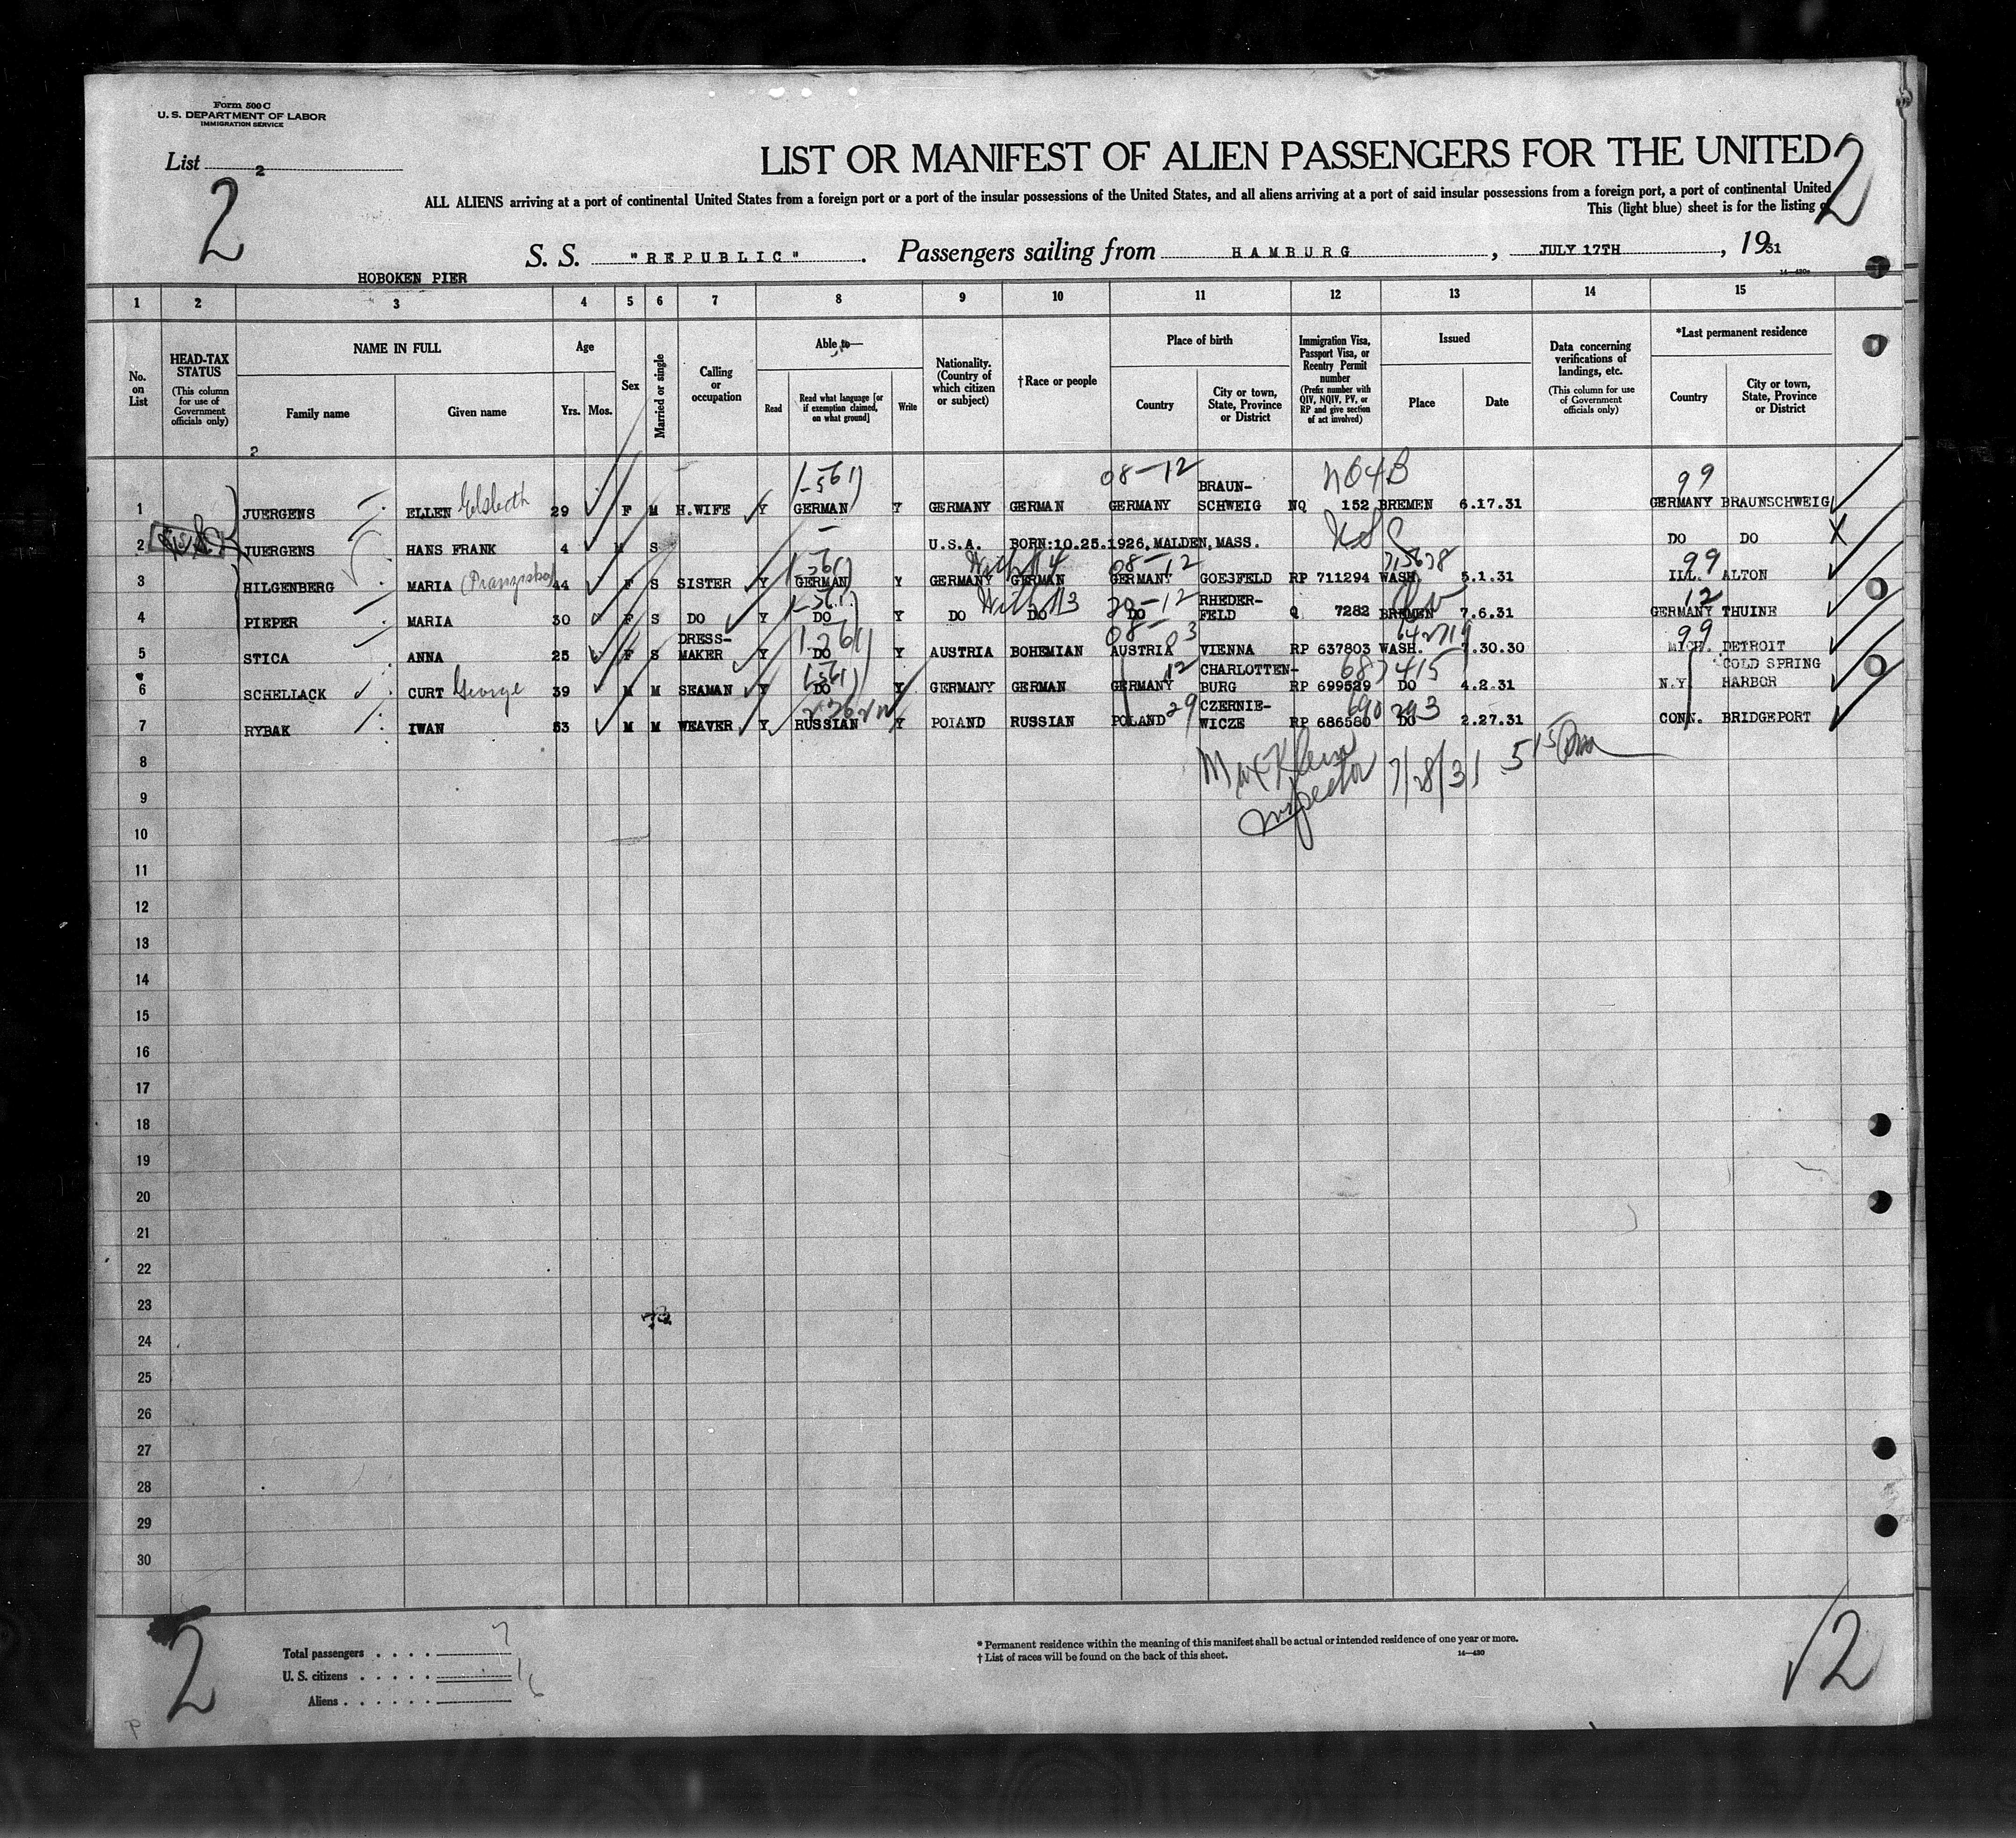 Form 500 C
U. S. DEPARTMENT OF LABOR
IMMIGRATION SERVICE
List 2
2
LIST OR MANIFEST OF ALIEN PASSENGERS FOR THE UNITED
2
ALL ALIENS arriving at a port of continental United States from a foreign port or a port of the insular possessions of the United States, and all aliens arriving at a port of said insular possessions from a foreign port, a port of continental United
This (light blue) sheet is for the listing
S. S. "REPUBLIC". Passengers sailing from HAMBURG, JULY 17TH, 1931
HOBOKEN PIER
14—430
1 2 3 4 5 6 7 8 9 10 11 12 13 14 15
No. on List
HEAD-TAX STATUS (This column for use of Government officials only)
NAME IN FULL Family name Given name
Age Yrs. Mos.
Sex
Married or single
Calling or occupation
Able to— Read Read what language [or if exemption claimed, on what ground] Write
Nationality. (Country of which citizen or subject)
†Race or people
Place of birth Country City or town, State, Province or District
Immigration Visa, Passport Visa, or Reentry Permit number (Prefix number with QIV, NQIV, PV, or RP and give section of act involved)
Issued Place Date
Data concerning verifications of landings, etc. (This column for use of Government officials only)
*Last permanent residence Country City or town, State, Province or District
2
08-12 99
1 JUERGENS ELLEN Elsbeth 29 F M H.WIFE Y GERMAN Y GERMANY GERMAN GERMANY BRAUN-SCHWEIG NQ 152 BREMEN 6.17.31 GERMANY BRAUNSCHWEIG
2 JUERGENS HANS FRANK 4 M S U.S.A. BORN:10.25.1926, MALDEN, MASS. DO DO
With #4 08-12 99
3 HILGENBERG MARIA (Franziska) 44 F S SISTER Y GERMAN Y GERMANY GERMAN GERMANY GOESFELD RP 711294 WASH. 5.1.31 ILL. ALTON
With #3 20-12 12
4 PIEPER MARIA 30 F S DO Y DO Y DO DO DO RHEDER-FELD Q 7282 BREMEN 7.6.31 GERMANY THUINE
08-03 642719 99
5 STICA ANNA 25 F S DRESS-MAKER Y DO Y AUSTRIA BOHEMIAN AUSTRIA VIENNA RP 637803 WASH. 7.30.30 MICH. DETROIT
12 687415
6 SCHELLACK CURT George 39 M M SEAMAN Y DO Y GERMANY GERMAN GERMANY CHARLOTTEN-BURG RP 699529 DO 4.2.31 N.Y. COLD SPRING HARBOR
29 690293
7 RYBAK IWAN 53 M M WEAVER Y RUSSIAN Y POLAND RUSSIAN POLAND CZERNIE-WICZE RP 686580 DO 2.27.31 CONN. BRIDGEPORT
8
Max Klein Inspector 7/28/31
9
10
11
12
13
14
15
16
17
18
19
20
21
22
23
24
25
26
27
28
29
30
2
Total passengers . . . . 7
U. S. citizens . . . . . 1
Aliens . . . . . . 6
* Permanent residence within the meaning of this manifest shall be actual or intended residence of one year or more.
† List of races will be found on the back of this sheet.
14—430
2